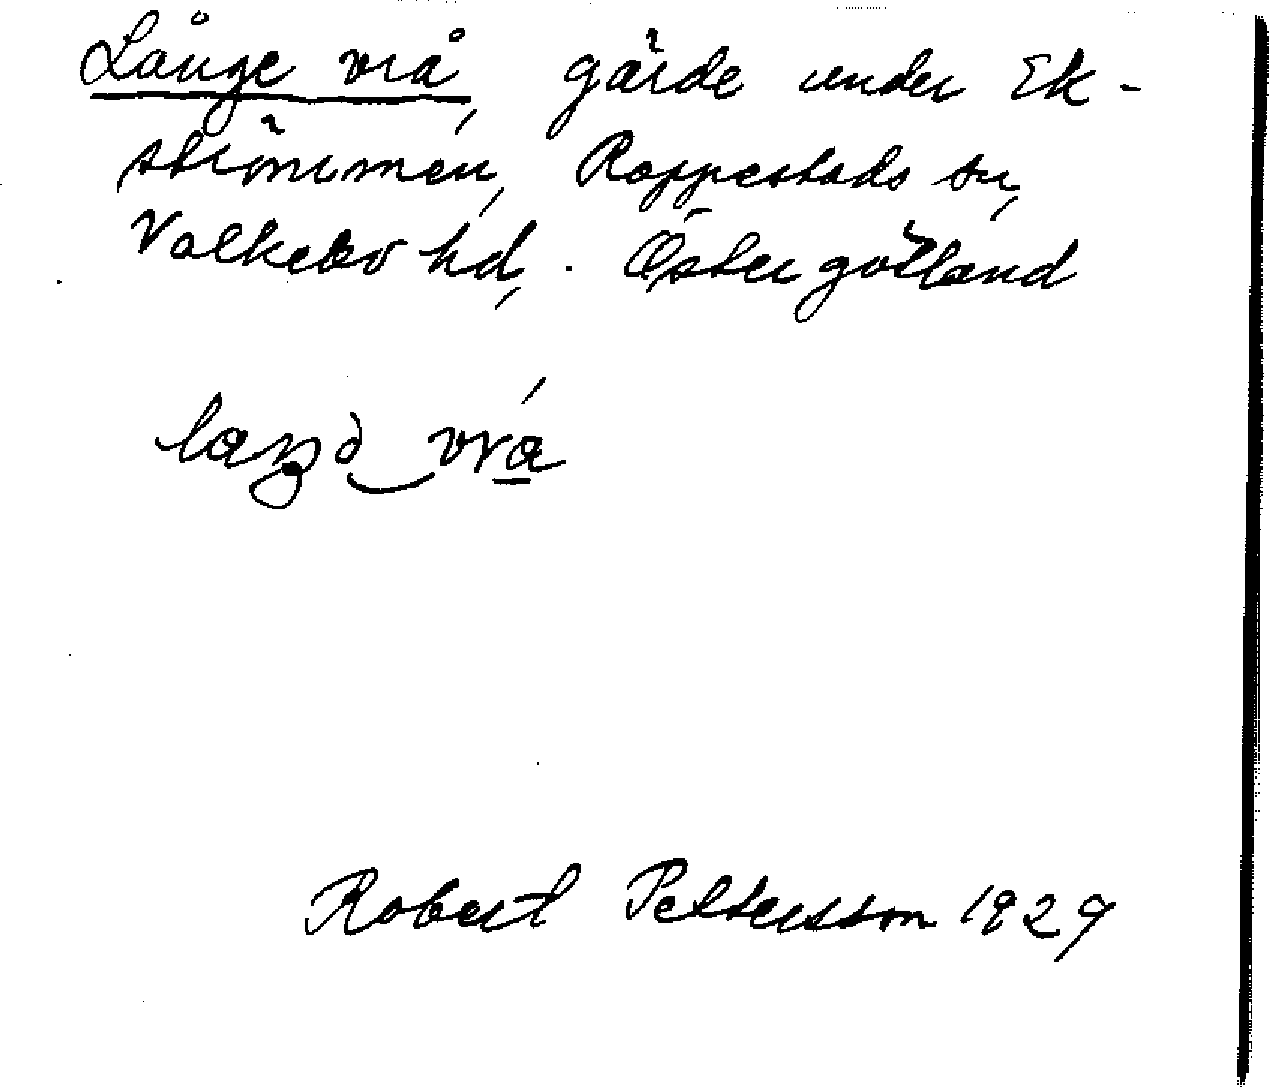 Långe vrå, gärde under Ek-
strömmen, Rappestads sn,
Valkebo hd, . Östergötland
vrá
Robert Pettersson 1929